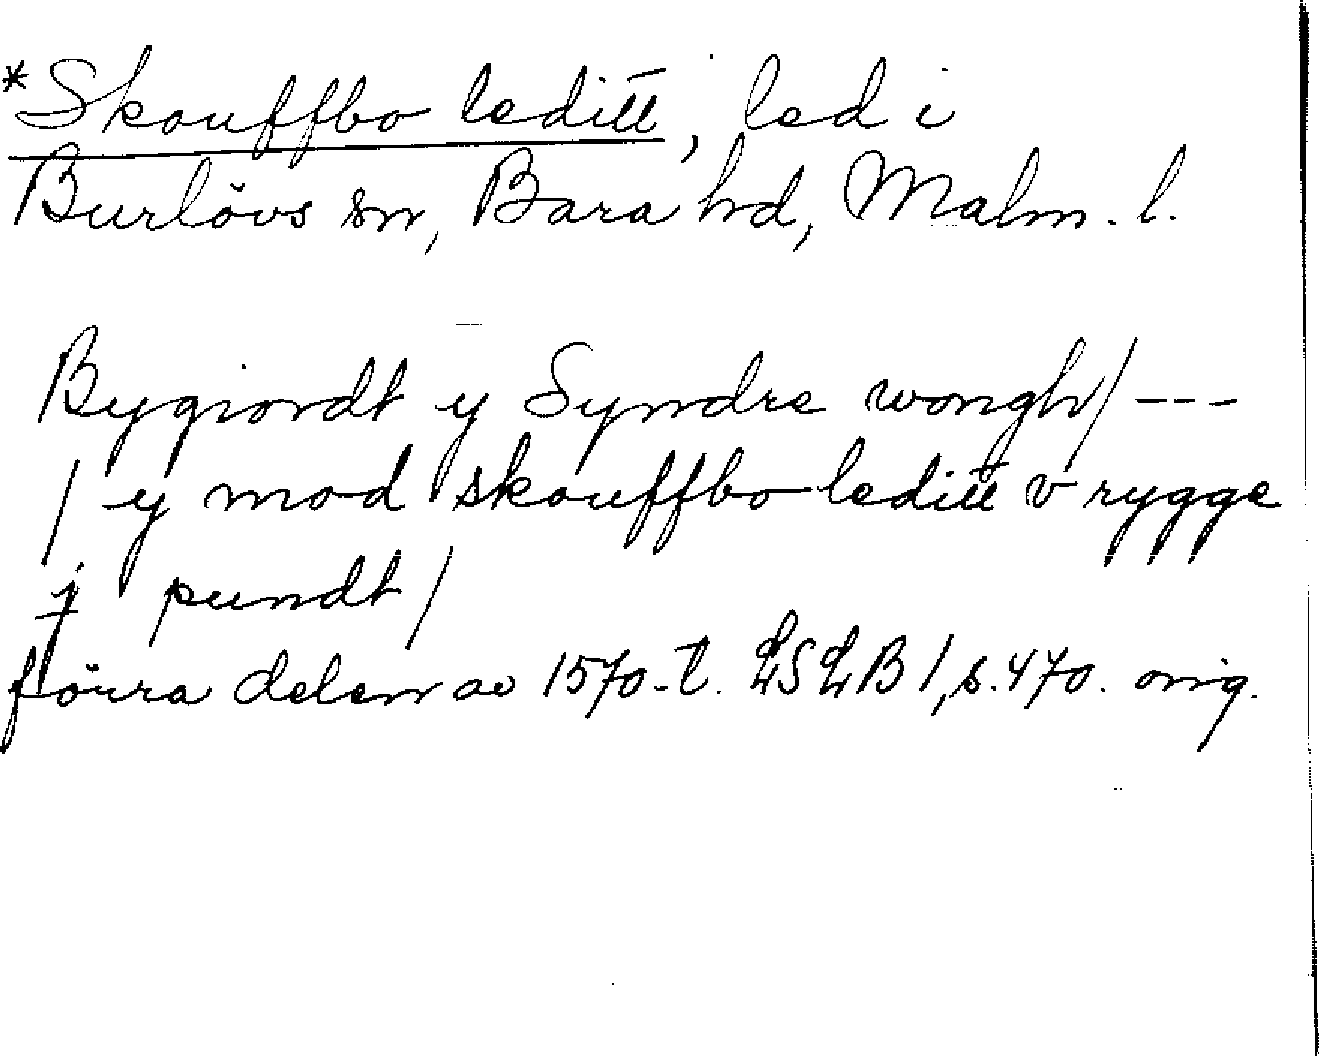 *Skouffbo leditt, led i
Burlövs sn, Bara hd, Malm. l.
Bygiordt y Syndre wongh/ ---
/ y mod skouffbo leditt v rygge
j pundt/
förra delen av 1570-t. LSLB 1, s. 470. orig.